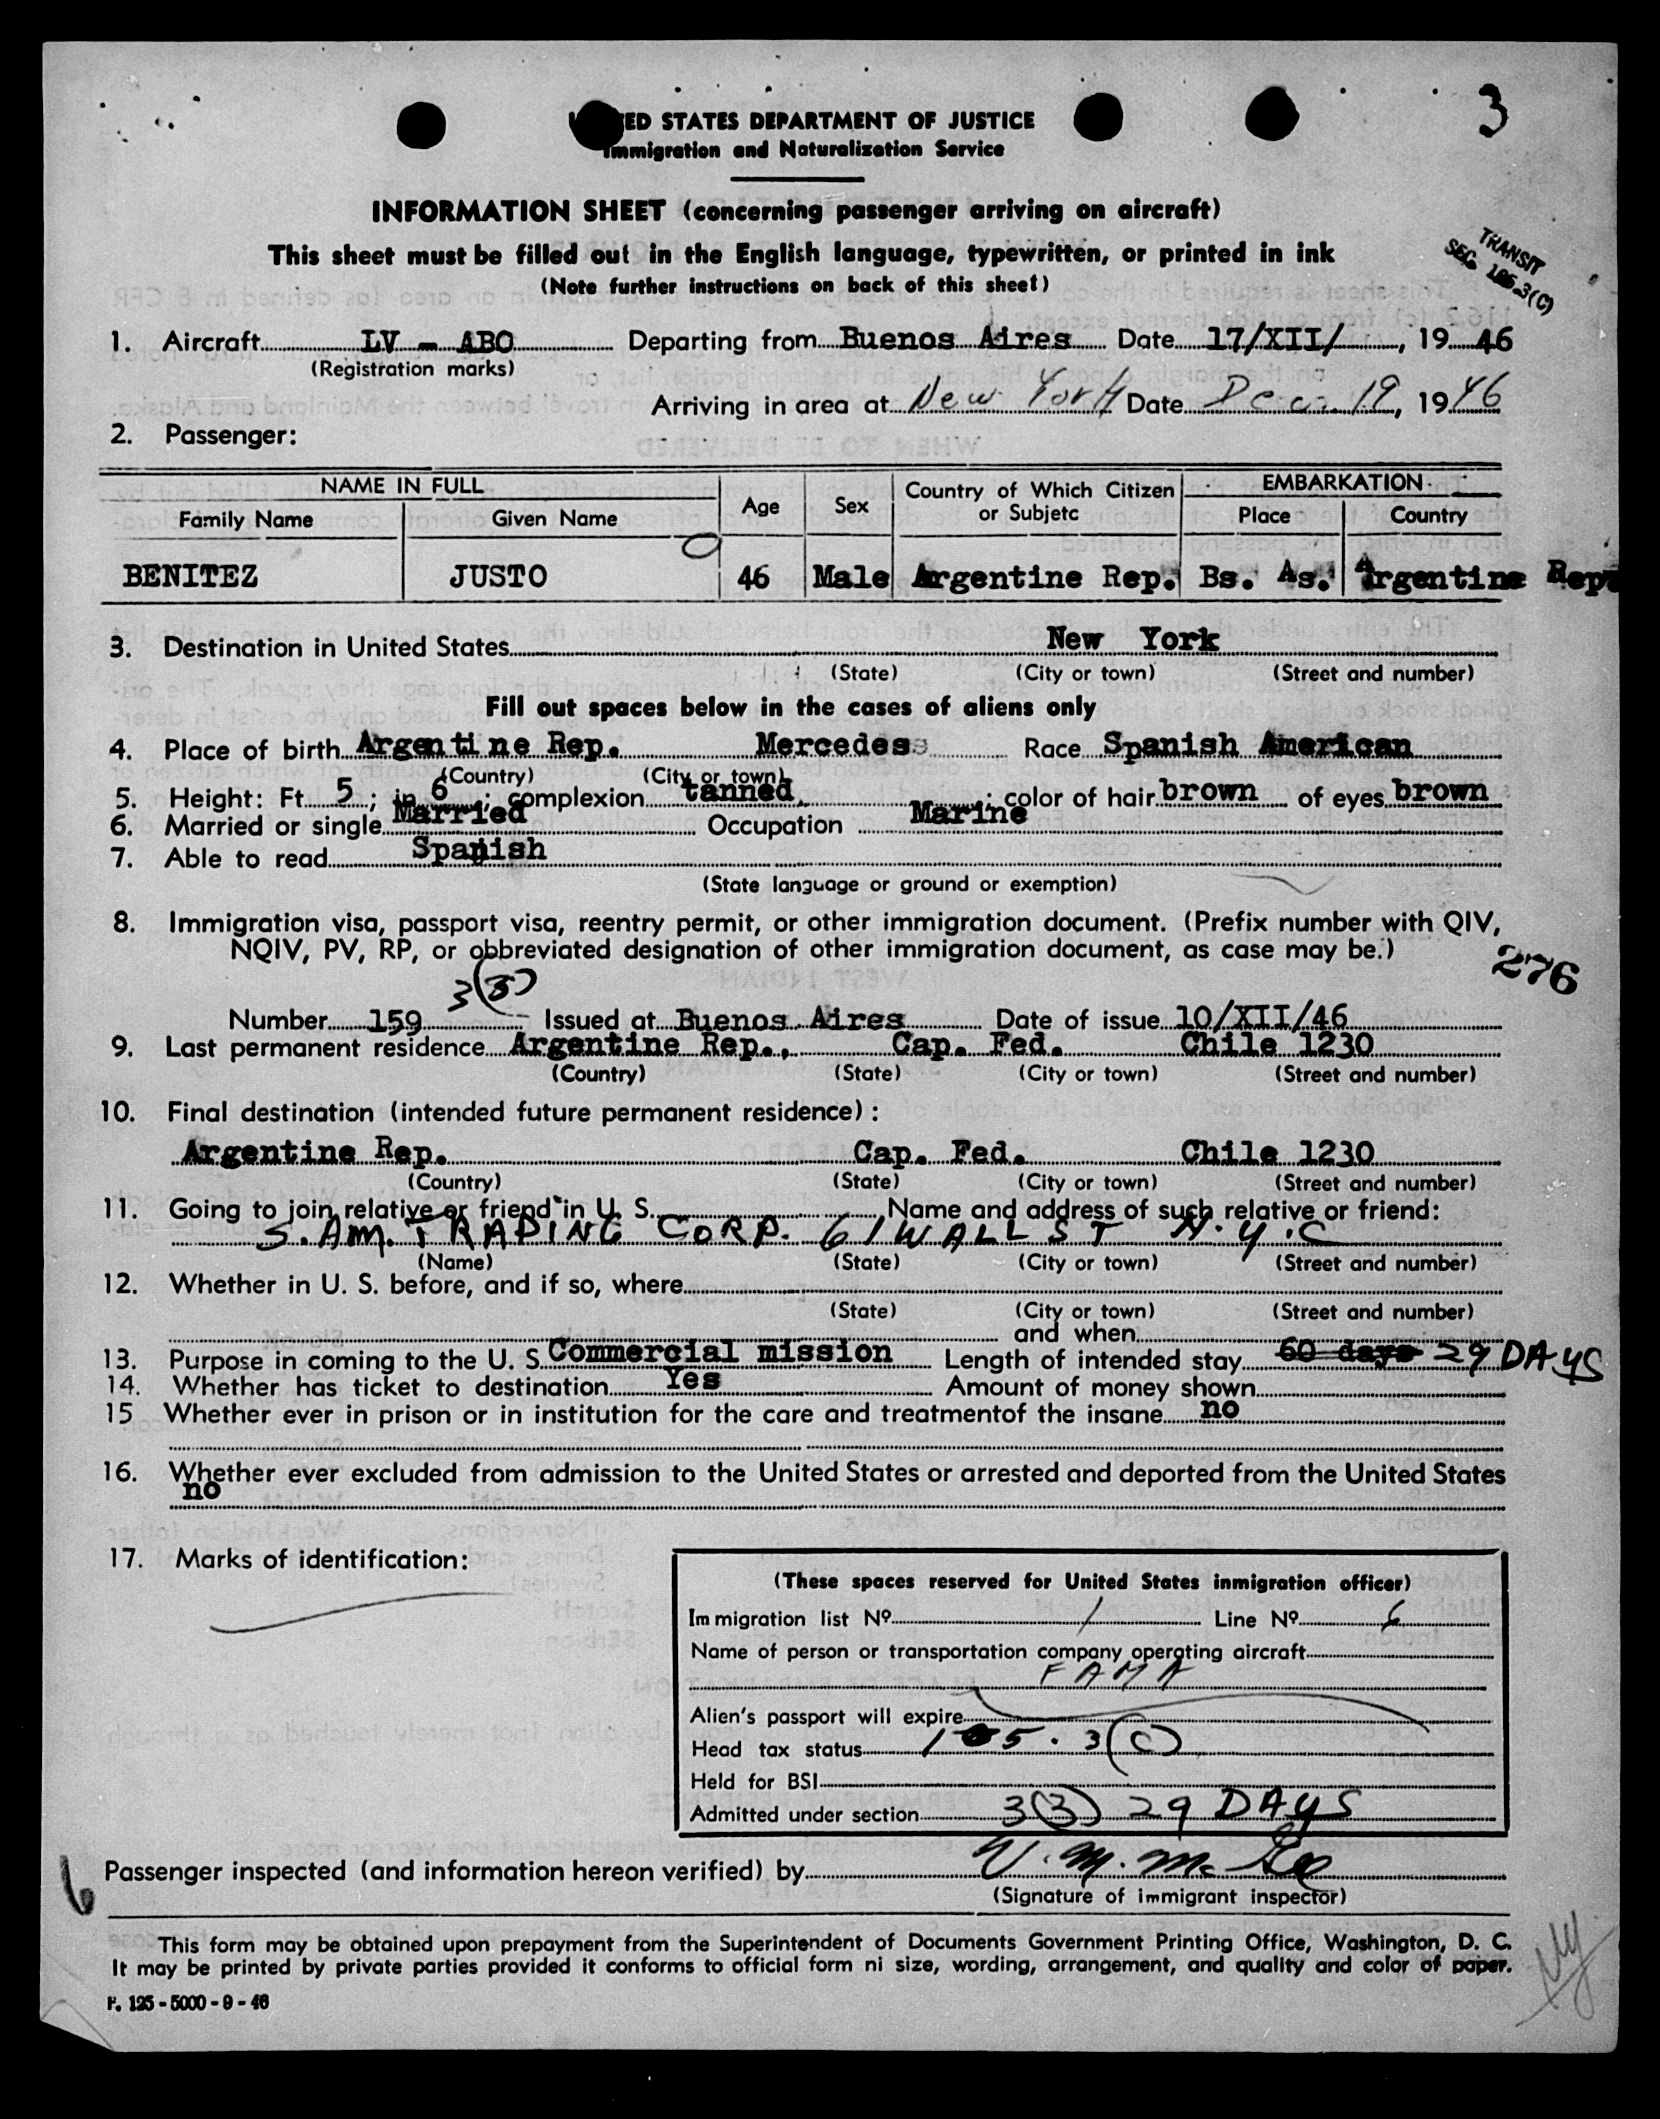 3
ED STATES DEPARTMENT OF JUSTICE
Immigration and Naturalization Service
INFORMATION SHEET (concerning passenger arriving on aircraft)
This sheet must be filled out in the English language, typewritten, or printed in ink
(Note further instructions on back of this sheet)
TRANSIT
SEC. 125.3(C)
1. Aircraft LV - ABO Departing from Buenos Aires Date 17/XII/, 19 46
(Registration marks)
Arriving in area at New York Date Dec. 19, 19 46
2. Passenger:
NAME IN FULL Age Sex Country of Which Citizen or Subjetc EMBARKATION
Family Name Given Name Place Country
BENITEZ JUSTO 46 Male Argentine Rep. Bs. As. Argentine Rep
3. Destination in United States New York
(State) (City or town) (Street and number)
Fill out spaces below in the cases of aliens only
4. Place of birth Argentine Rep. Mercedes Race Spanish American
(Country) (City or town)
5. Height: Ft. 5; in 6; complexion tanned; color of hair brown of eyes brown
6. Married or single Married Occupation Marine
7. Able to read Spanish
(State language or ground or exemption)
8. Immigration visa, passport visa, reentry permit, or other immigration document. (Prefix number with QIV,
NQIV, PV, RP, or obbreviated designation of other immigration document, as case may be.)
276
3(3)
Number 159 Issued at Buenos Aires Date of issue 10/XII/46
9. Last permanent residence Argentine Rep., Cap. Fed. Chile 1230
(Country) (State) (City or town) (Street and number)
10. Final destination (intended future permanent residence):
Argentine Rep. Cap. Fed. Chile 1230
(Country) (State) (City or town) (Street and number)
11. Going to join relative or friend in U. S. Name and address of such relative or friend:
S. AM. TRADING CORP. 61 WALL ST N.Y.C
(Name) (State) (City or town) (Street and number)
12. Whether in U. S. before, and if so, where
(State) (City or town) (Street and number)
and when
13. Purpose in coming to the U. S. Commercial mission Length of intended stay 60 days 29 DAYS
14. Whether has ticket to destination Yes Amount of money shown
15 Whether ever in prison or in institution for the care and treatmentof the insane no
16. Whether ever excluded from admission to the United States or arrested and deported from the United States
no
17. Marks of identification:
(These spaces reserved for United States inmigration officer)
Immigration list Nº 1 Line Nº 6
Name of person or transportation company operating aircraft
FAMA
Alien's passport will expire
Head tax status 105.3(C)
Held for BSI
Admitted under section 3(3) 29 DAYS
6 Passenger inspected (and information hereon verified) by
(Signature of immigrant inspector)
This form may be obtained upon prepayment from the Superintendent of Documents Government Printing Office, Washington, D. C.
It may be printed by private parties provided it conforms to official form ni size, wording, arrangement, and quality and color of paper.
F. 125 - 5000 - 9 - 46
NY